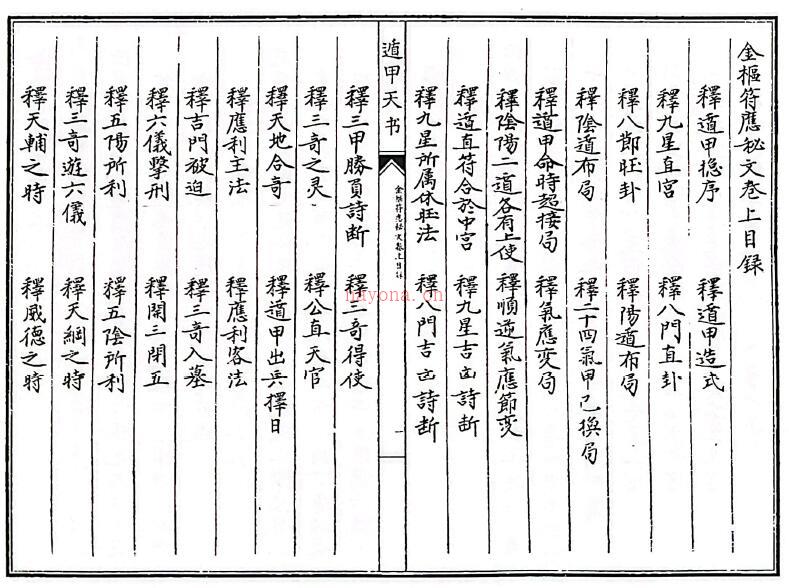 金樞符應秘文卷上目録
釋遁甲隐序 釋遁甲造式
釋九星直宫 釋八門直卦
釋八節旺卦 釋陽遁布局
釋陰遁布局 釋二十四氣甲己換局
釋遁甲命時超接局 釋氣應変局
釋陰陽二遁各有上使 釋順逆氣應節变
釋遁直符合於中宫 釋九星吉凶詩断
釋九星所属休旺法 釋八門吉凶詩断
遁甲天书
金樞符應秘文卷上目録
一
釋三甲勝負詩断 釋三奇得使
釋三奇之灵 釋公直天官
釋天地合奇 釋遁甲出兵擇日
釋應利主法 釋應利客法
釋吉門被迫 釋三奇入墓
釋六儀擊刑 釋開三閉五
釋五陽所利 釋五陰所利
釋三奇遊六儀 釋天綱之時
釋天輔之時 釋威德之時
nayona.cn